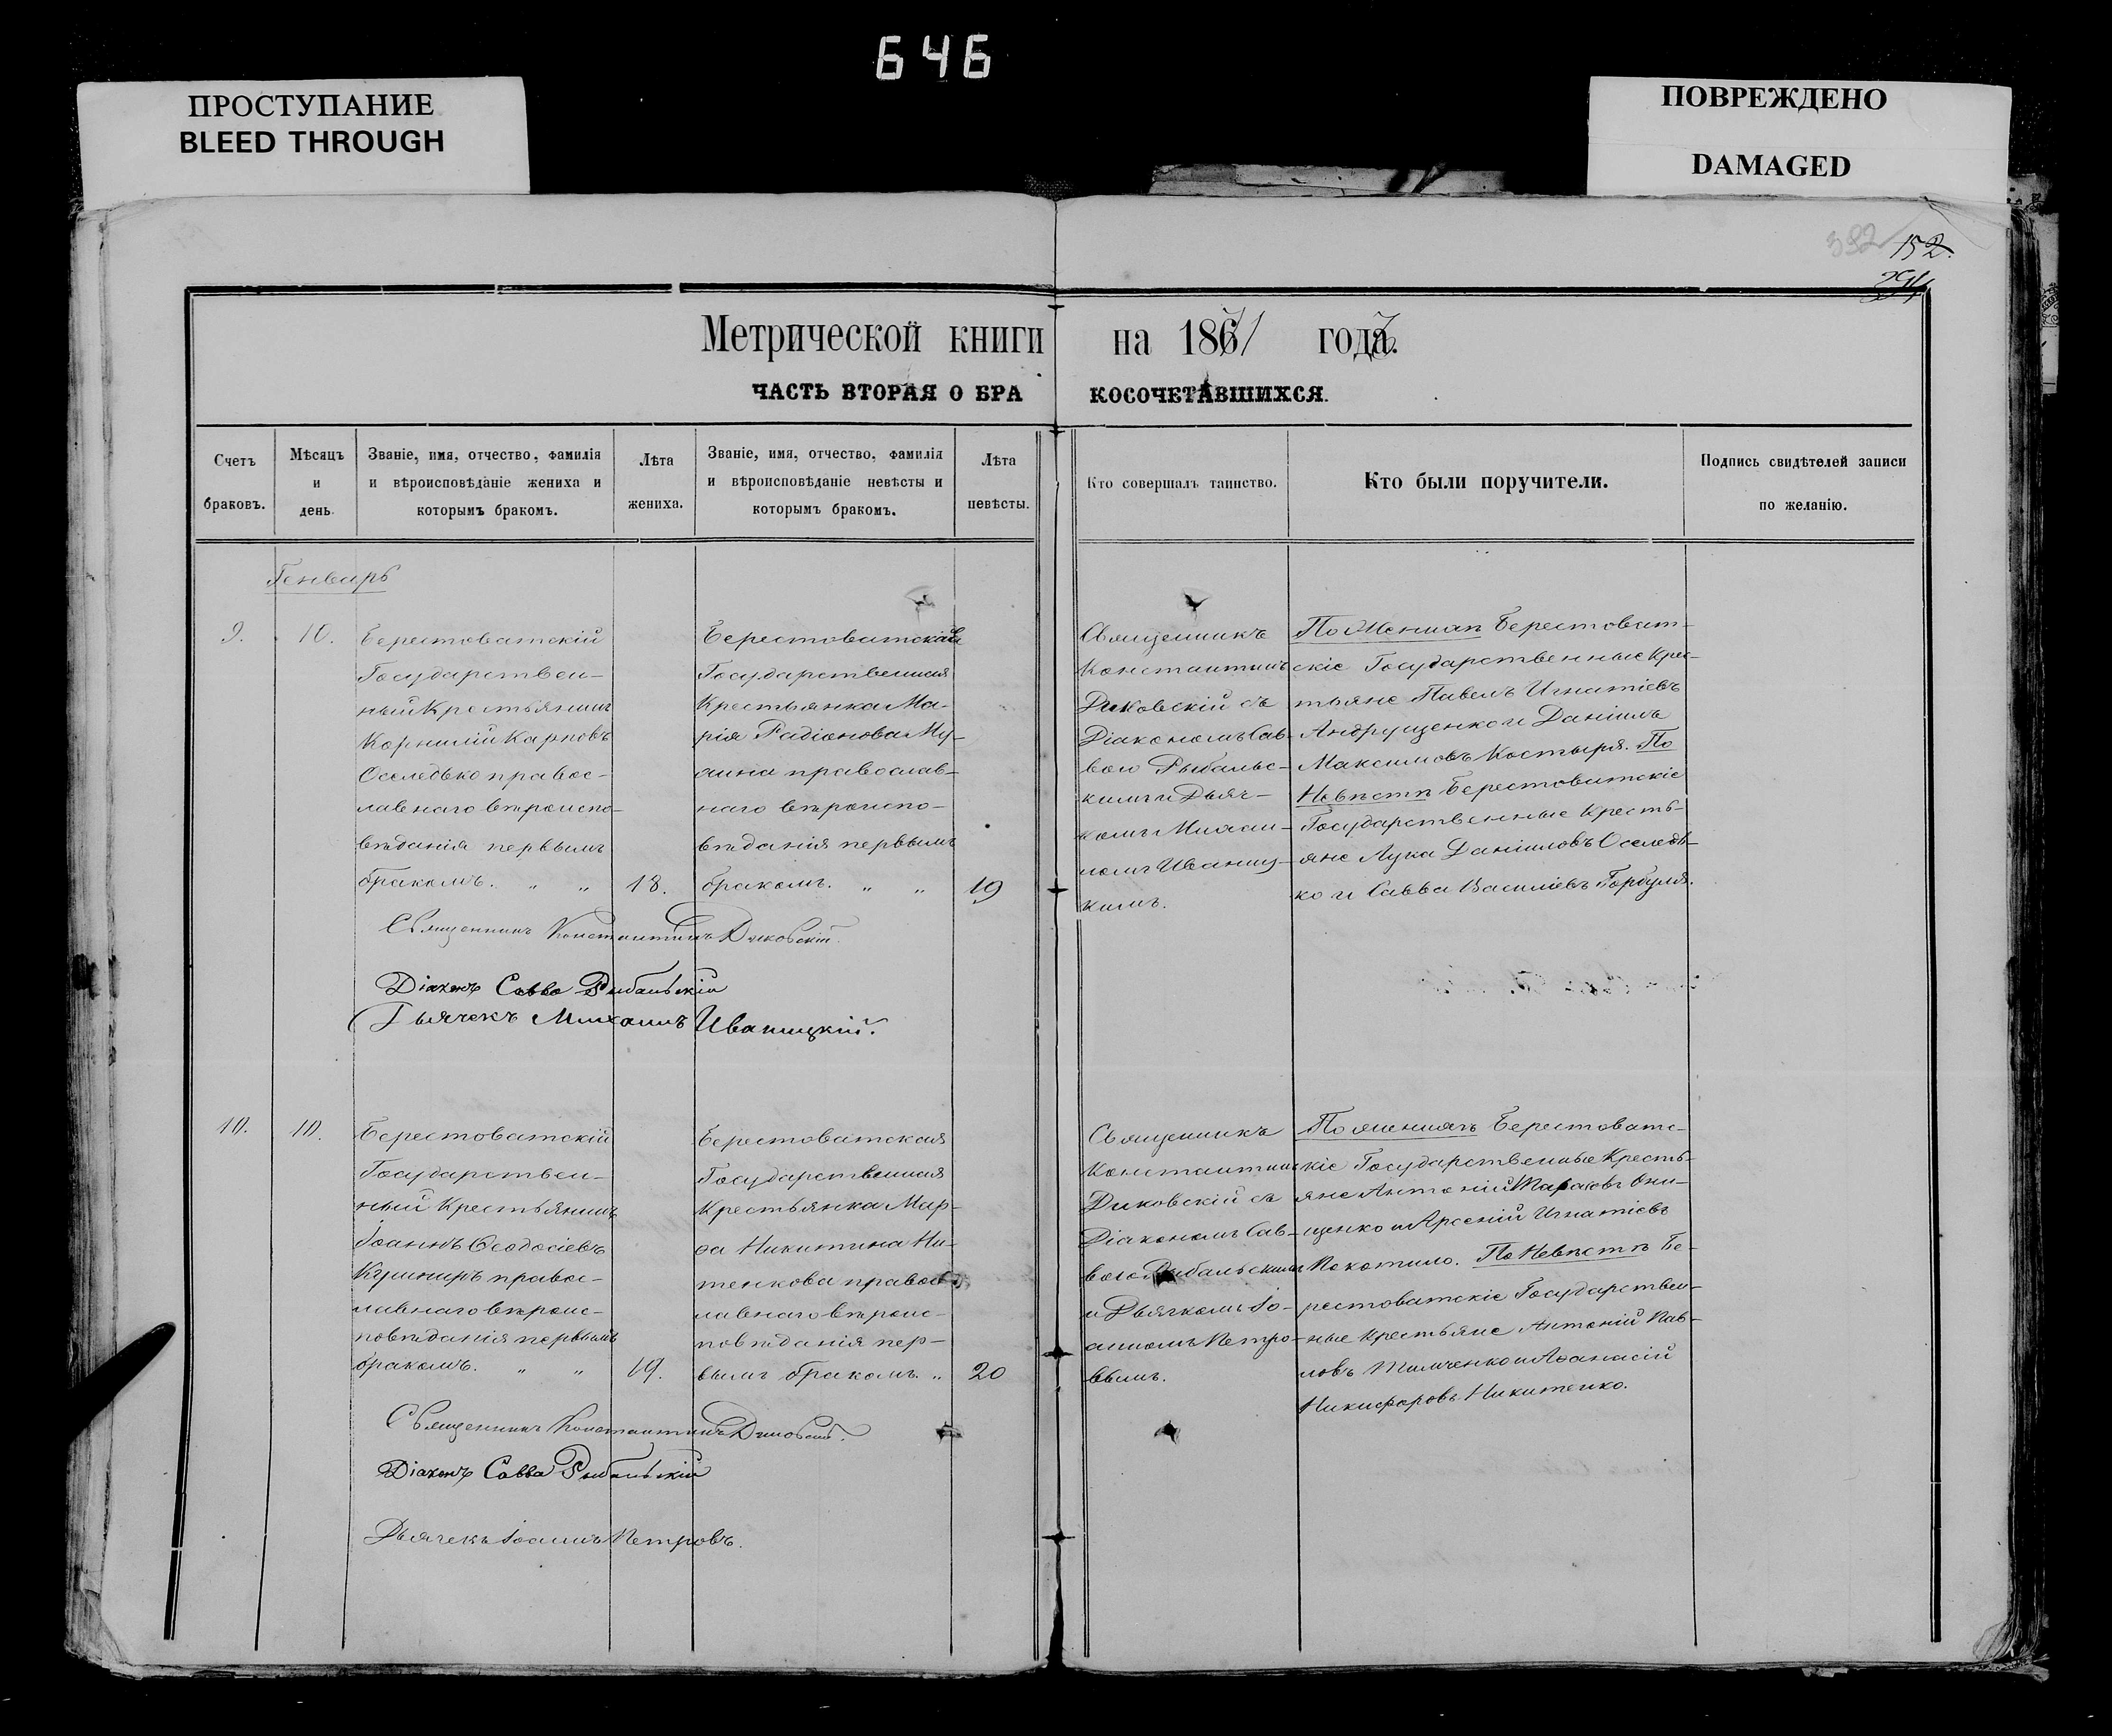 646
ПРОСТУПАНИЕ
BLEED THROUGH
ПОВРЕЖДЕНО
DAMAGED
152.
Метрической книги на 1871 года.
ЧАСТЬ ВТОРАЯ О БРАКОСОЧЕТАВШИХСЯ.
Счетъ браковъ.
Мѣсяцъ и день.
Званіе, имя, отчество, фамилія и вѣроисповѣданіе жениха и которымъ бракомъ.
Лѣта жениха.
Званіе, имя, отчество, фамилія и вѣроисповѣданіе невѣсты и которымъ бракомъ.
Лѣта невѣсты.
Кто совершалъ таинство.
Кто были поручители.
Подпись свидѣтелей записи по желанію.
Генварь
9.
10.
Берестоватскій
Государствен-
ный Крестьянинъ
Корнилій Карповъ
Оселедько правос-
лавнаго вѣроиспо-
вѣданія первымъ
бракомъ. „ „
18.
Берестоватская
Государственная
Крестьянка Ма-
рія Радіонова Му-
анна православ-
наго вѣроиспо-
вѣданія первымъ
бракомъ. „ „
19
Священникъ
Константинъ
Диковскій съ
Діакономъ Сав-
вою Рыбальс-
кимъ и Дьяч-
комъ Михаи-
ломъ Иваниц-
кимъ.
По Женихѣ Берестоват-
скіе Государственные Крес-
тьяне Павелъ Игнатіевъ
Андрущенко и Даніилъ
Максимовъ Костыря. По
Невѣстѣ Берестоватскіе
Государственные Кресть-
яне Лука Даніиловъ Оселедь-
ко и Савва Василіевъ Горбуля.
Священникъ Константинъ Диковскій.
Діаконъ Савва Рыбальскій
Дьячекъ Михаилъ Иваницкій.
10.
10.
Берестоватскій
Государствен-
ный Крестьянинъ
Іоаннъ Ѳеодосіевъ
Кушниръ правос-
лавнаго вѣроис-
повѣданія первымъ
бракомъ. „ „
19.
Берестоватская
Государственная
Крестьянка Мар-
ѳа Никитина Ни-
тенкова правос-
лавнаго вѣроис-
повѣданія пер-
вымъ бракомъ. „
20
Священникъ
Константинъ
Диковскій съ
Діакономъ Сав-
вою Рыбальскимъ
и Дьячкомъ Іо-
анномъ Петро-
вымъ.
По женихѣ Берестоватс-
кіе Государственные Кресть-
яне Антоній Тарасовъ Они-
щенко и Арсеній Игнатіевъ
Покотило. По Невѣстѣ Бе-
рестоватскіе Государствен-
ные Крестьяне Антоній Пав-
ловъ Тимченко и Аѳанасій
Никифоровъ Никитенко.
Священникъ Константинъ Диковскій.
Діаконъ Савва Рыбальскій
Дьячекъ Іоаннъ Петровъ.